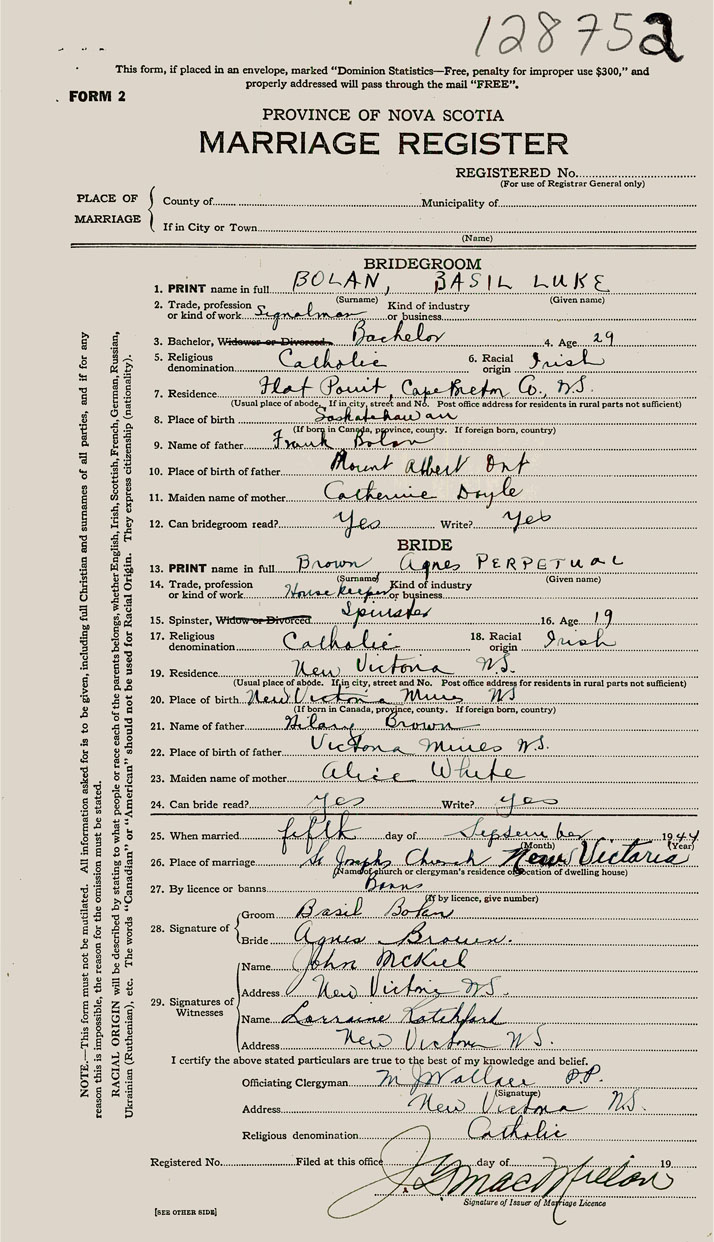 128752
This form, if placed in an envelope, marked "Dominion Statistics—Free, penalty for improper use $300," and
properly addressed will pass through the mail "FREE".
FORM 2
PROVINCE OF NOVA SCOTIA
MARRIAGE REGISTER
REGISTERED No.
(For use of Registrar General only)
PLACE OF MARRIAGE
County of Municipality of
If in City or Town
(Name)
BRIDEGROOM
1. PRINT name in full BOLAN, BASIL LUKE
(Surname) (Given name)
2. Trade, profession or kind of work Signalman Kind of industry or business
3. Bachelor, Widower or Divorced Bachelor 4. Age 29
5. Religious denomination Catholic 6. Racial origin Irish
7. Residence Flat Point, Cape Breton Co, N.S.
(Usual place of abode. If in city, street and No. Post office address for residents in rural parts not sufficient)
8. Place of birth Saskatchawan
(If born in Canada, province, county. If foreign born, country)
9. Name of father Frank Bolan
10. Place of birth of father Mount Albert Ont
11. Maiden name of mother Catherine Doyle
12. Can bridegroom read? Yes Write? Yes
BRIDE
13. PRINT name in full Brown Agnes PERPETUAL
(Surname) (Given name)
14. Trade, profession or kind of work Housekeeper Kind of industry or business
15. Spinster, Widow or Divorced Spinster 16. Age 19
17. Religious denomination Catholic 18. Racial origin Irish
19. Residence New Victoria N.S.
(Usual place of abode. If in city, street and No. Post office address for residents in rural parts not sufficient)
20. Place of birth New Victoria Mines NS
(If born in Canada, province, county. If foreign born, country)
21. Name of father Hilary Brown
22. Place of birth of father Victoria Mines N.S.
23. Maiden name of mother Alice White
24. Can bride read? yes Write? yes
25. When married fifth day of September 1944
(Month) (Year)
26. Place of marriage St Josephs Church New Victoria
(Name of church or clergyman's residence or location of dwelling house)
27. By licence or banns Banns
(If by licence, give number)
28. Signature of
Groom Basil Bolan
Bride Agnes Brown.
29. Signatures of Witnesses
Name John McKiel
Address New Victoria N.S.
Name Lorraine Ratchford
Address New Victoria N.S.
I certify the above stated particulars are true to the best of my knowledge and belief.
Officiating Clergyman M J Wallace P.P.
(Signature)
Address New Victoria N.S.
Religious denomination Catholic
Registered No. Filed at this office day of 19
Signature of Issuer of Marriage Licence
[SEE OTHER SIDE]
NOTE.—This form must not be mutilated. All information asked for is to be given, including full Christian and surnames of all parties, and if for any
reason this is impossible, the reason for the omission must be stated.
RACIAL ORIGIN will be described by stating to what people or race each of the parents belongs, whether English, Irish, Scottish, French, German, Russian,
Ukrainian (Ruthenian), etc. The words "Canadian" or "American" should not be used for Racial Origin. They express citizenship (nationality).